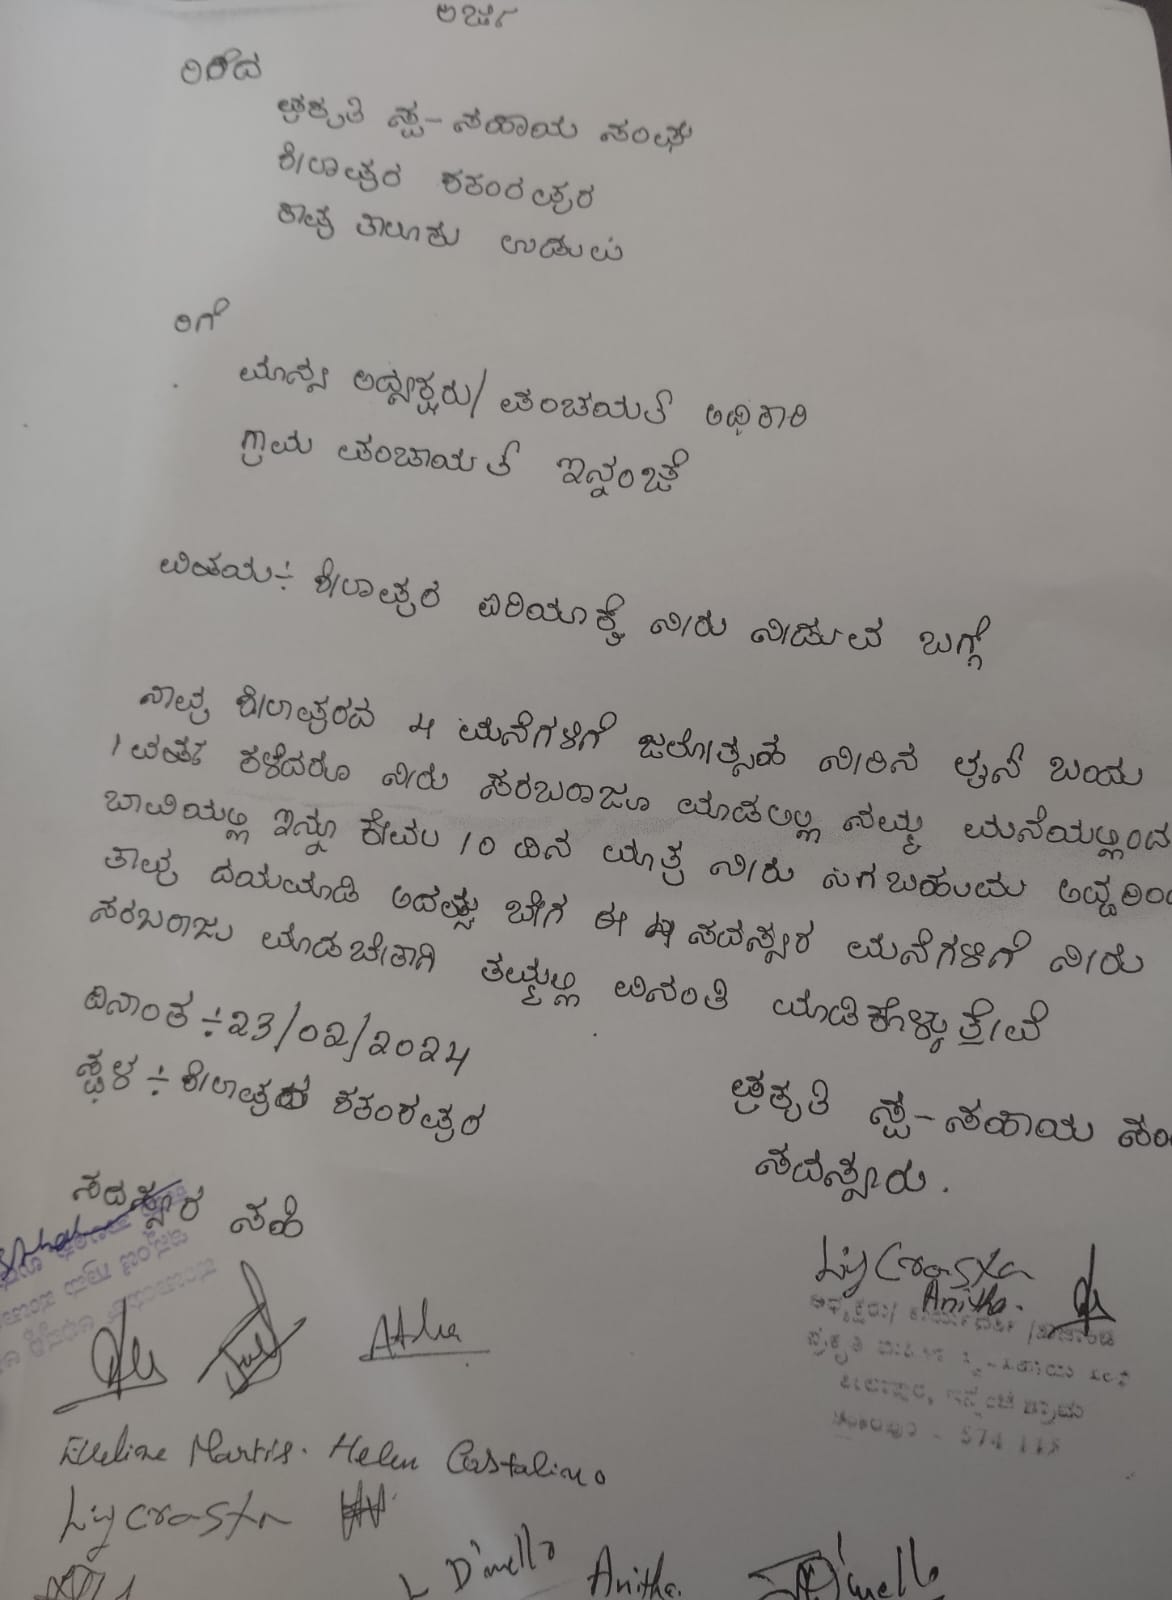 ಅರ್ಜಿ
ರಿಂದ
ಪ್ರಕೃತಿ ಸ್ವ-ಸಹಾಯ ಸಂಘ
ಕೀಲಾಪುರ ಶಂಕರಪುರ
ಕಾಪು ತಾಲೂಕು ಉಡುಪಿ
ರಿಗೆ
ಮಾನ್ಯ ಅಧ್ಯಕ್ಷರು/ ಪಂಚಯತ್ ಅಧಿಕಾರಿ
ಗ್ರಾಮ ಪಂಚಾಯತ್ ಇನ್ನಂಜೆ
ವಿಷಯ÷ ಕೀಲಾಪುರ ಏರಿಯಾಕ್ಕೆ ನೀರು ನೀಡುವ ಬಗ್ಗೆ
ನಾವು ಕೀಲಾಪುರದ 4 ಮನೆಗಳಿಗೆ ನೀರಿನ ಬಂದು
1 ವರ್ಷ ಕಳೆದರೂ ನೀರು ಸರಬರಾಜೂ ಮಾಡಲಿಲ್ಲ ನಮ್ಮ ಮನೆಯಲ್ಲಿಂದ
ಬಾವಿಯಲ್ಲಿ ಇನ್ನೂ ಕೇವಲ 10 ದಿನ ಮಾತ್ರ ನೀರು ಸಿಗಬಹುದು
ತಾವು ದಯಮಾಡಿ ಅದಷ್ಟು ಬೇಗ ಈ ಸದಸ್ಯರ ಮನೆಗಳಿಗೆ ನೀರು
ಸರಬರಾಜು ಮಾಡಬೇಕಾಗಿ ತಮ್ಮಲ್ಲಿ ವಿನಂತಿ ಮಾಡಿಕೊಳ್ಳುತ್ತೇವೆ
ದಿನಾಂಕ ÷23/02/2024
ಸ್ಥಳ ÷ ಕೀಲಾಪುರ ಶಂಕರಪುರ
ಪ್ರಕೃತಿ ಸ್ವ-ಸಹಾಯ
ಸದಸ್ಯರು.
ಸದಸ್ಯರ ಸಹಿ
Lily Crasta
Anitha.
574 115
Eveline Martis. Helen Castalino
Lily Crasta
L D'mello Anitha. D'mello